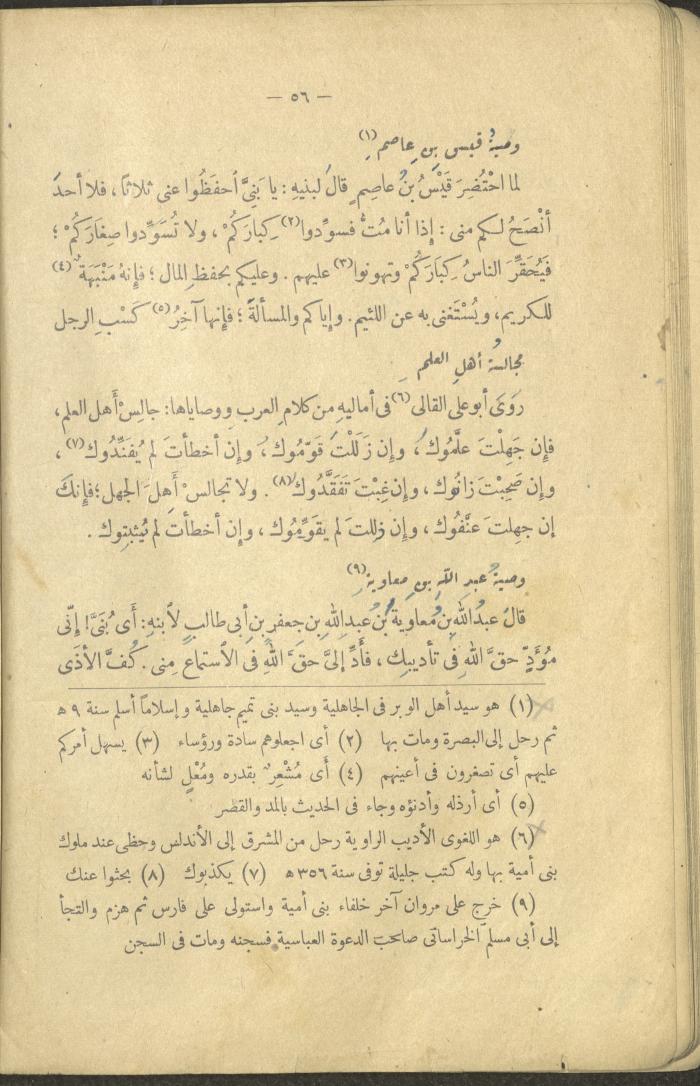 — ٥٦ —
وصية قيس بن عاصم (١)
لما احْتُضِرَ قَيْسُ بْنُ عاصِمٍ قالَ لبنيهِ : يا بَنِيَّ ٱحفَظُوا عنى ثلاثاً ، فلا أحدَ
أنْصَحُ لكم منى : إذا أنا مُتُّ فسوِّدوا (٢) كِبارَكُمْ ، ولا تُسَوِّدوا صِغَارَكُمْ ؛
فَيُحَقِّرَ الناسُ كِبَارَكُمْ وتهونوا (٣) عليهم . وعليكم بحفظِ المال ؛ فإنهُ مَنْبَهَةٌ (٤)
للكريم ، ويُسْتَغنى به عن اللئيم . وإياكم والمسألةَ ؛ فإنها آخِرُ (٥) كَسْبِ الرجل
مجالسةُ أهلِ العلم
رَوَى أبو على القالى (٦) فى أماليهِ من كلامِ العربِ ووصاياها : جالِسْ أَهل العلم ،
فإن جَهِلْتَ علَّمُوك ، وإن زَلَلْتَ قَوَّمُوك ، وإن أخطأتَ لم يُفَنِّدُوك (٧) ،
وإن صَحِبْتَ زانُوك ، وإن غِبْتَ تَفَقَّدُوك (٨) . ولا تجالسْ أَهلَ الجهل ؛ فإنكَ
إن جهلتَ عنَّفُوك ، وإن زللتَ لم يقوِّمُوك ، وإن أخطأتَ لم يُثبتوك .
وصيةُ عبدِ اللّهِ بنِ معاوية (٩)
قالَ عبدُ اللّهِ بنُ مُعاويةَ بنِ عبدِ اللّهِ بن جعفرِ بنِ أبى طالبٍ لاُبنهِ : أَى بُنَىَّ ! إنِّى
مُؤَدٍّ حقَّ اللّهِ فى تأديبِك ، فأَدِّ إلىَّ حقَّ اللّهِ فى الاُستماع منى . كُفَّ الأذَى
(١) هو سيد أهل الوبر فى الجاهلية وسيد بنى تميم جاهلية وإسلاماً أسلم سنة ٩ ه
ثم رحل إلى البصرة ومات بها (٢) أى اجعلوهم سادة ورؤساء (٣) يسهل أمركم
عليهم أى تصغرون فى أعينهم (٤) أَى مُشْعِرٌ بقدره ومُعْلٍ لشأنه
(٥) أى أرذله وأدنؤه وجاء فى الحديث بالمد والقصر
(٦) هو اللغوى الأديب الراوية رحل من المشرق إلى الأندلس وحظى عند ملوك
بنى أمية بها وله كتب جليلة توفى سنة ٣٥٦ ه (٧) يكذبوك (٨) بحثوا عنك
(٩) خرج على مروان آخر خلفاء بنى أمية واستولى على فارس ثم هزم والتجأ
إلى أبى مسلم الخراسانى صاحب الدعوة العباسية فسجنه ومات فى السجن